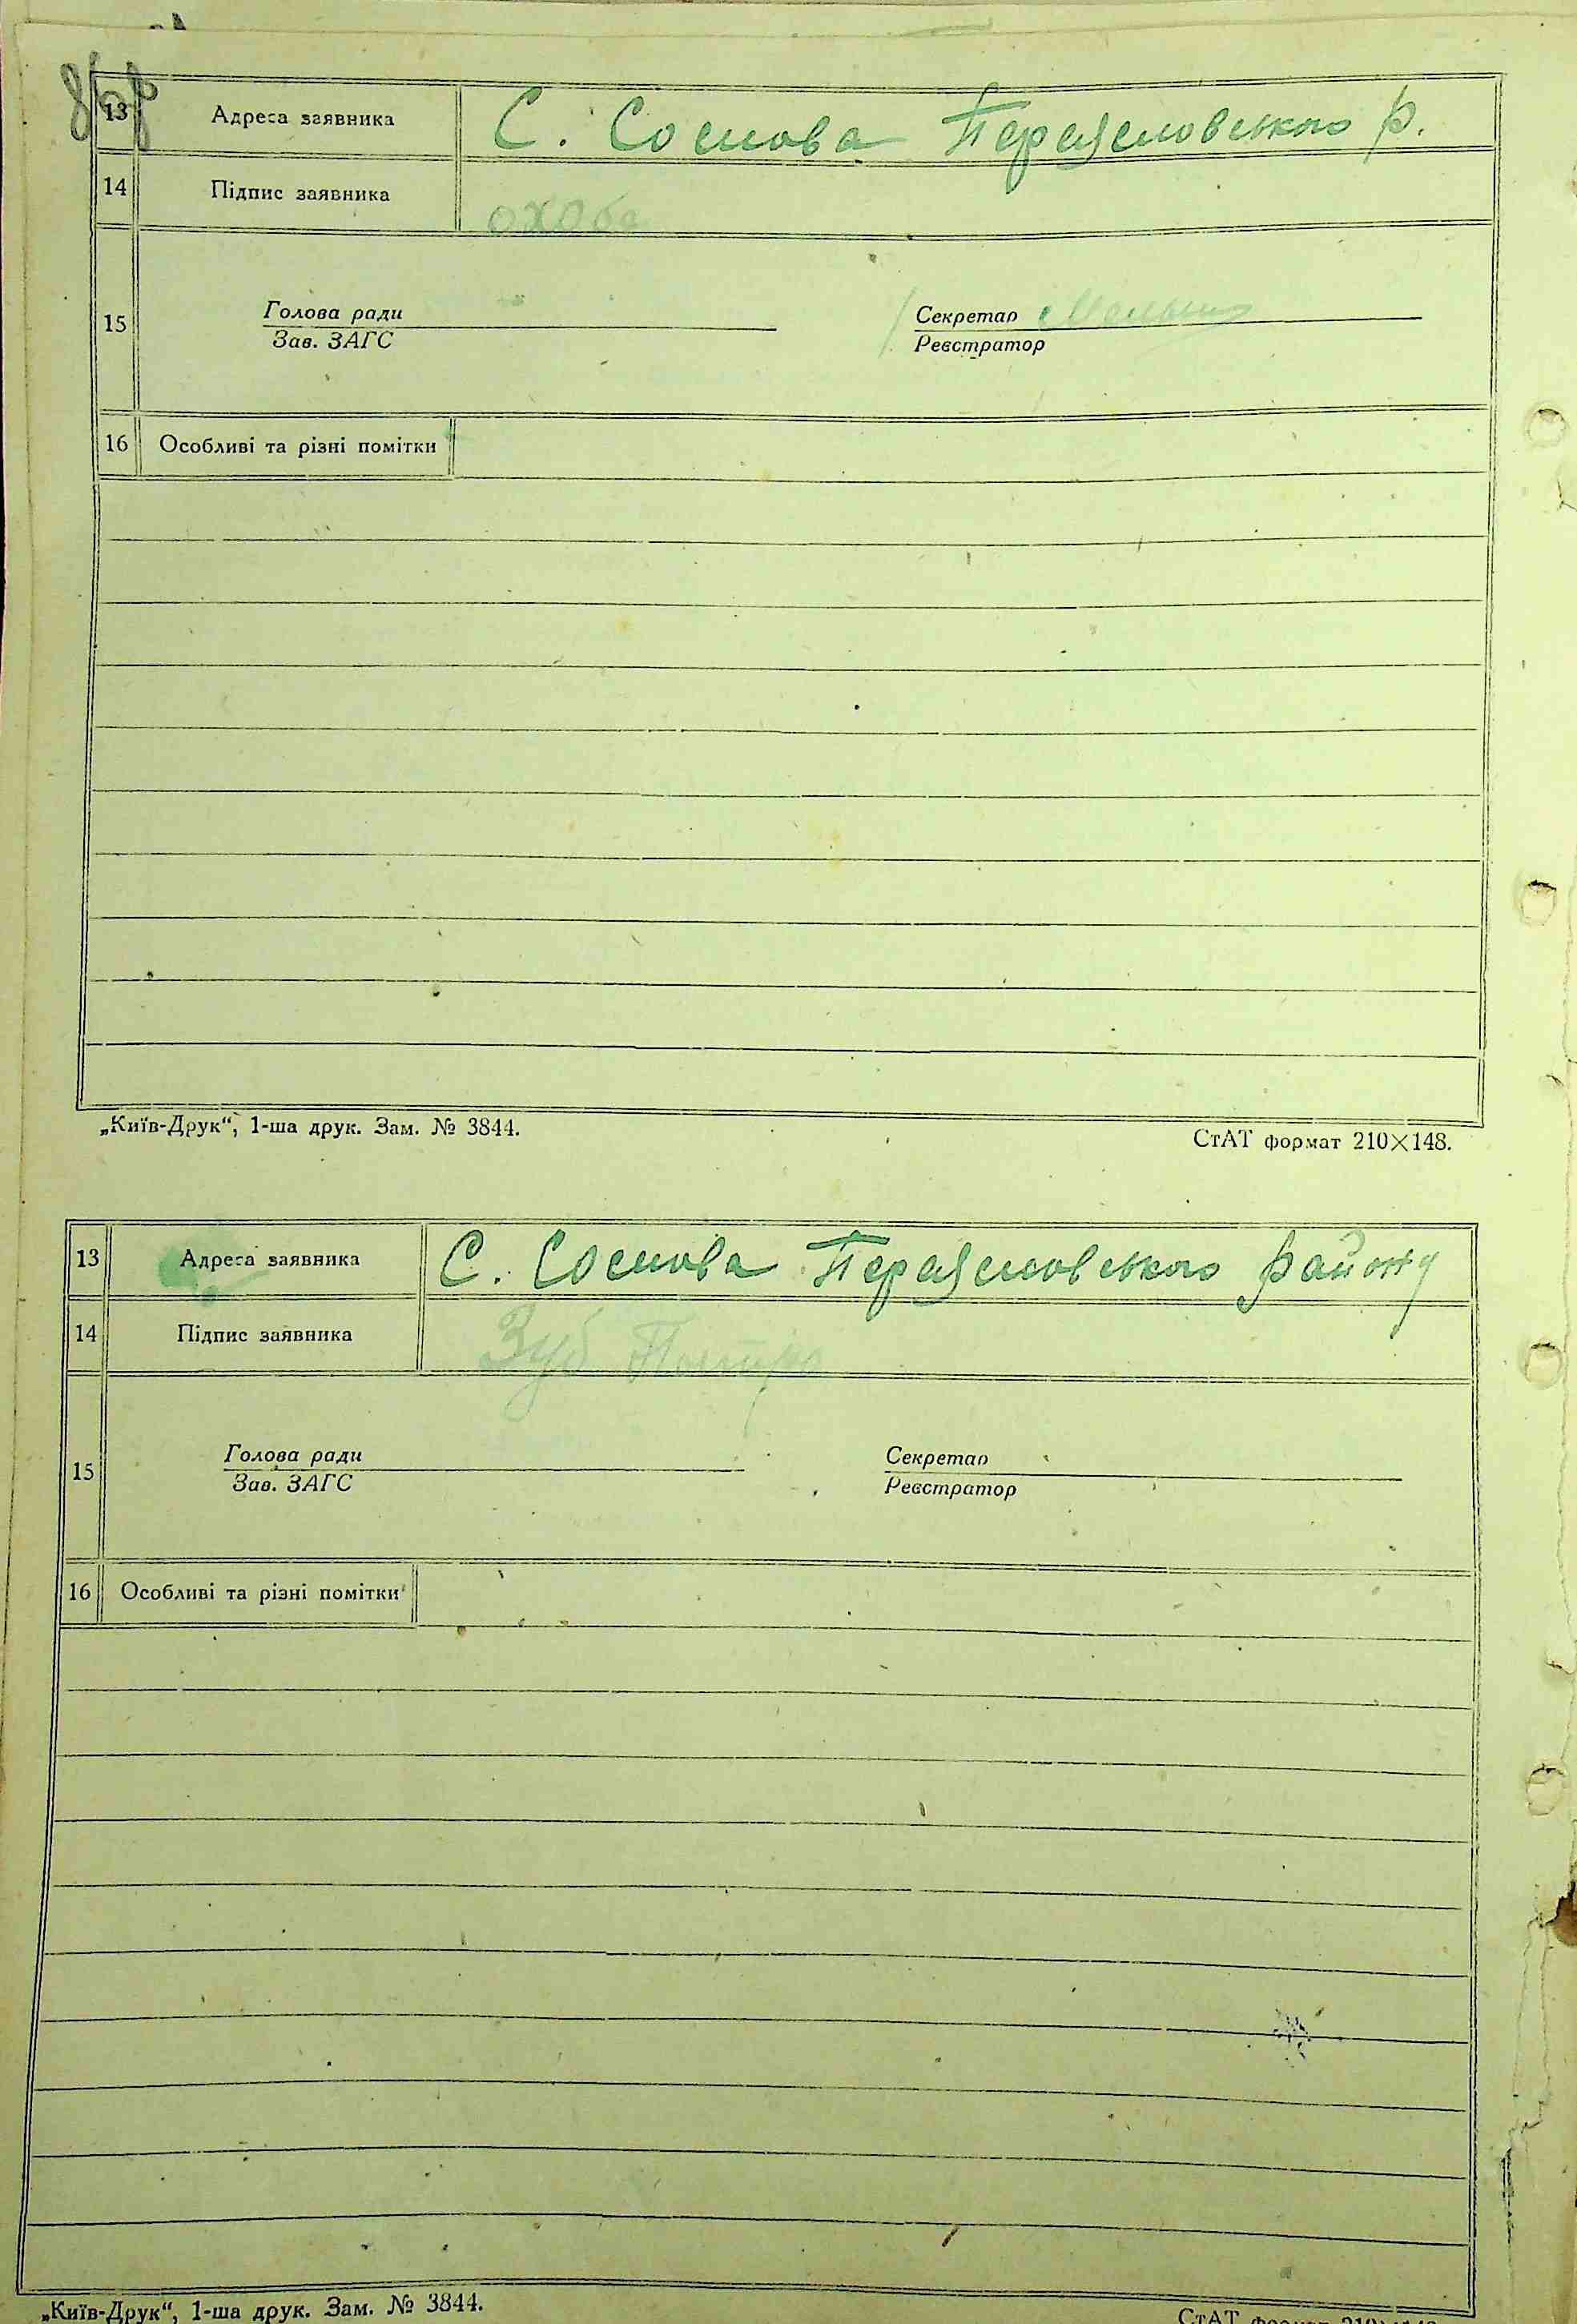 13 Адреса заявника С. Соснова Переясловського р.
14 Підпис заявника
15 Голова ради Секретар
Зав. ЗАГС Реєстратор
16 Особливі та різні помітки
„Київ-Друк“, 1-ша друк. Зам. № 3844. СтАТ формат 210×148.
13 Адреса заявника С. Соснова Переясловського району
14 Підпис заявника Зуб
15 Голова ради Секретар
Зав. ЗАГС Реєстратор
16 Особливі та різні помітки
„Київ-Друк“, 1-ша друк. Зам. № 3844. СтАТ формат